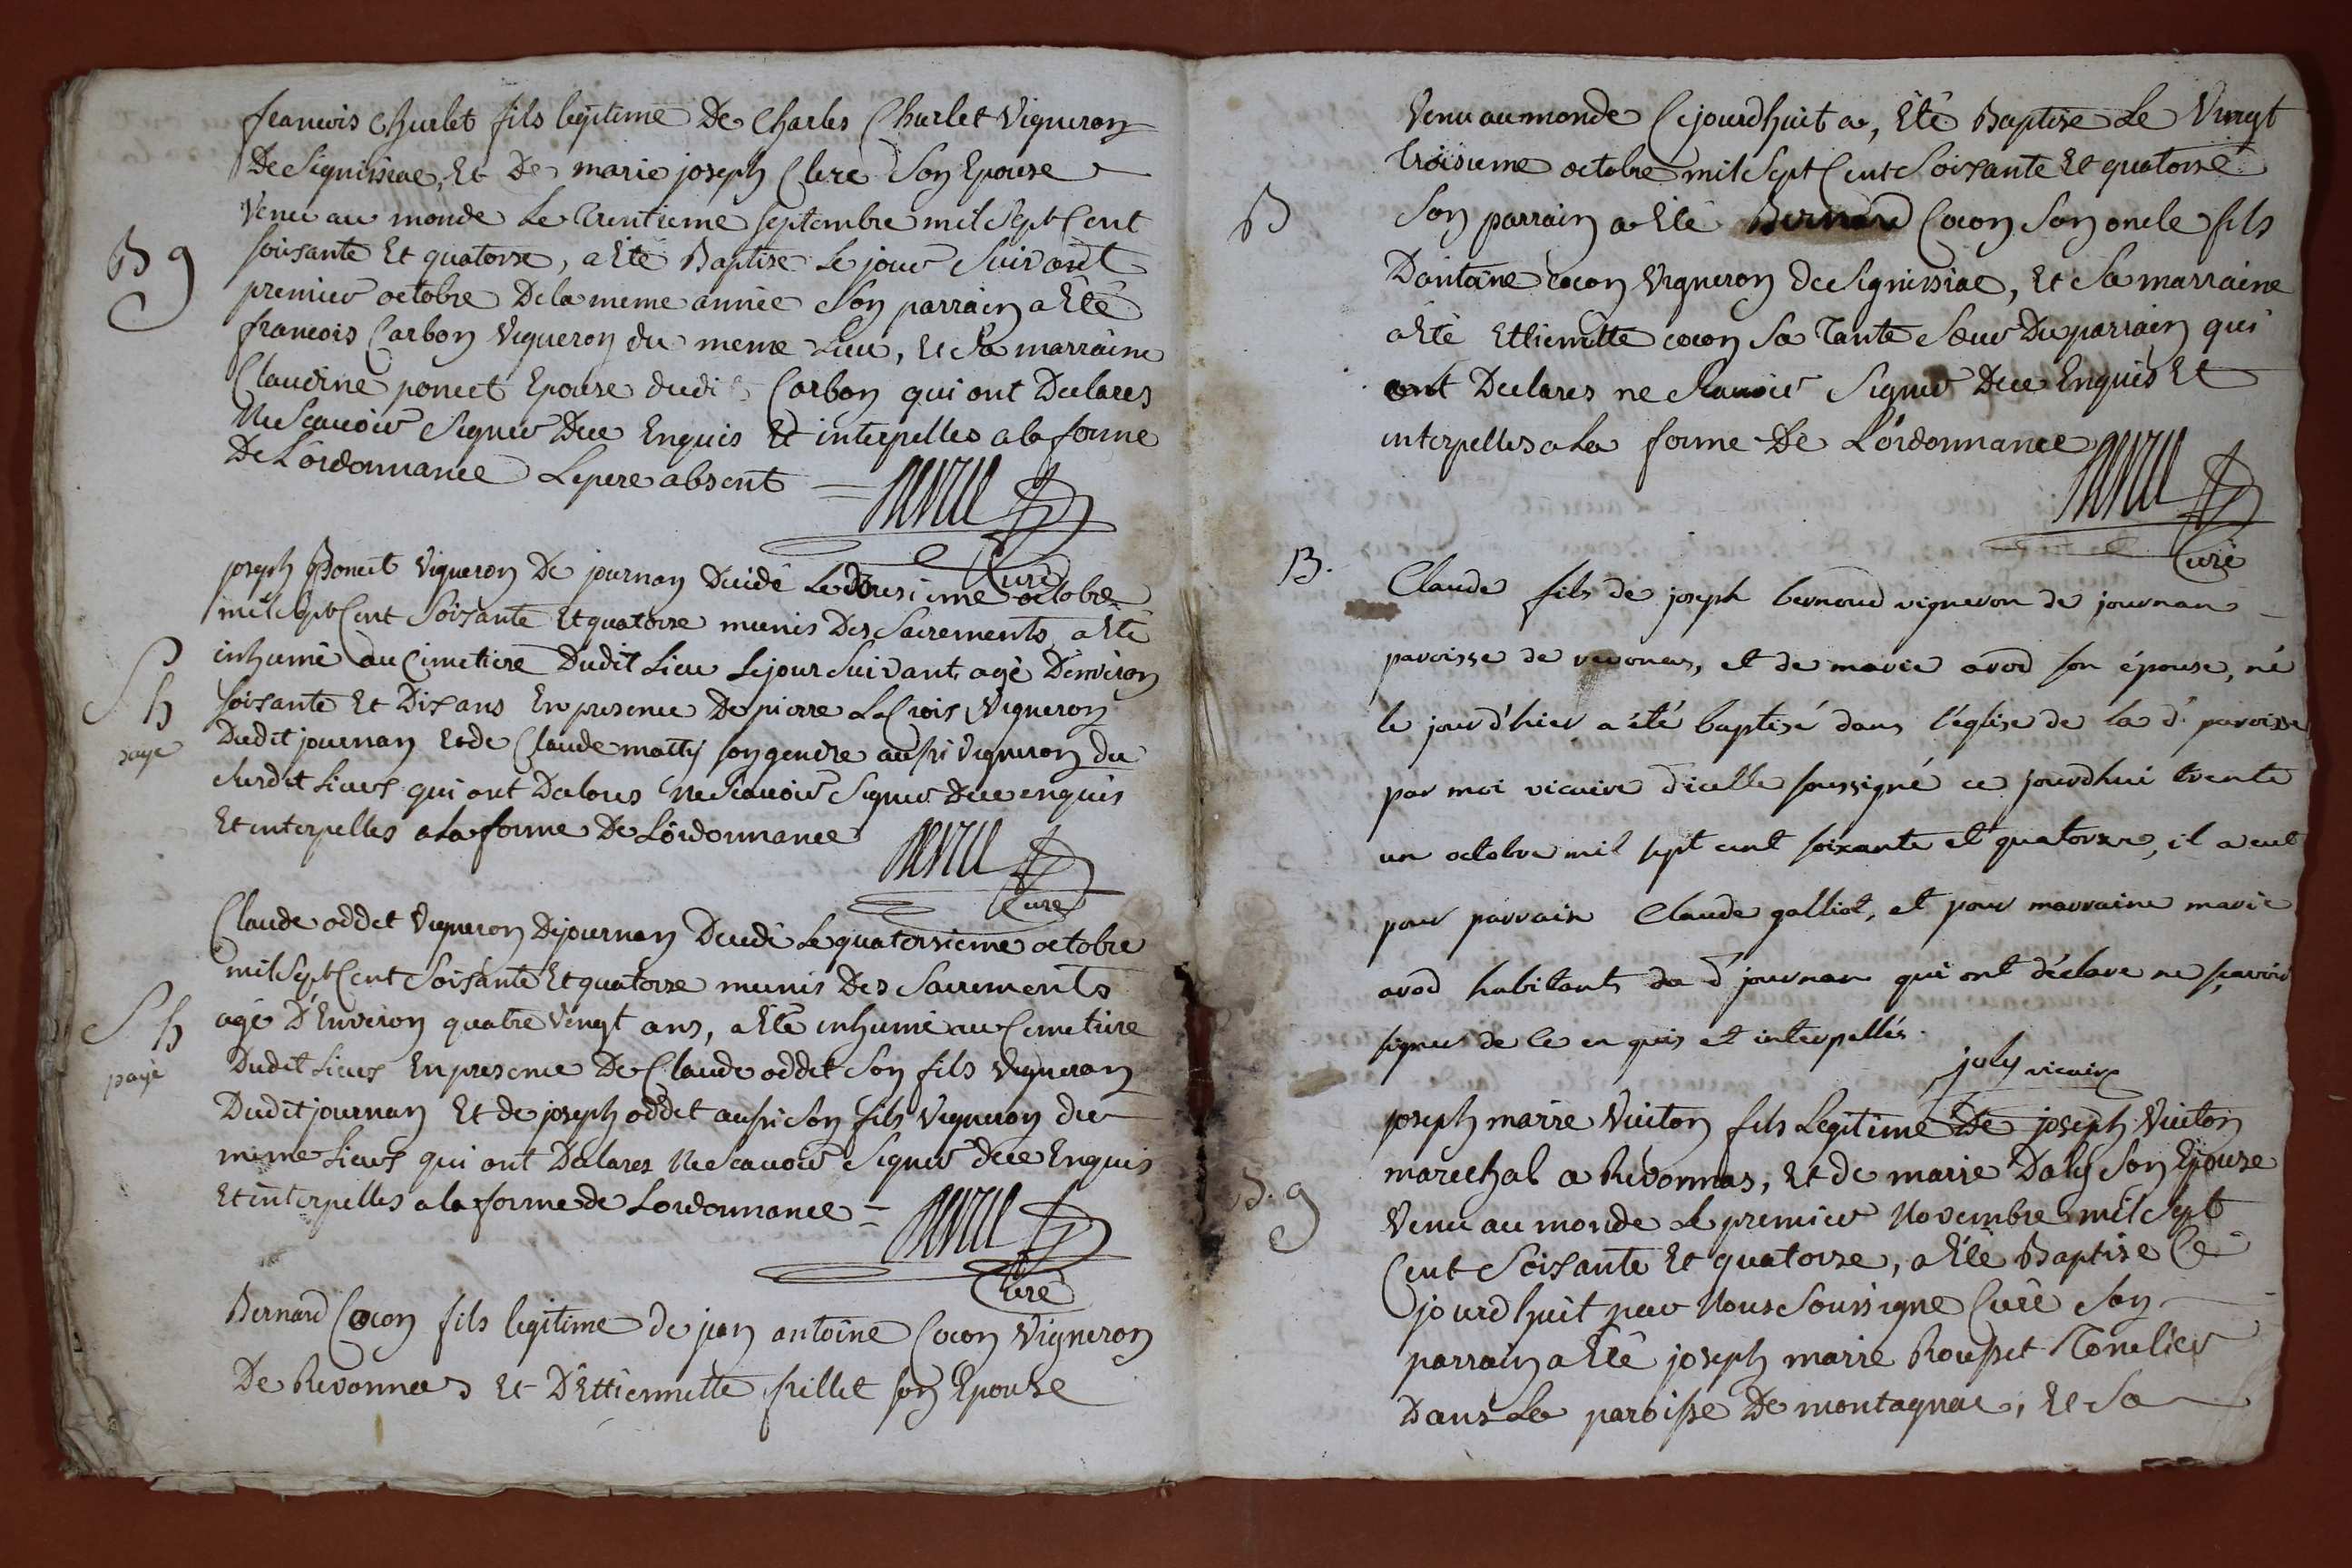 francois Churlet fils legitime De Charles Churlet Vigneron
De Signissiac, Et De marie joseph Clerc Son Epouse
Venu au monde Le trentieme septembre mil Sept Cent
B g
soisante Et quatorse, a Eté Baptisé Le jour Suivant
premier octobre De la meme année Son parrain a Eté
francois Carbon Vigneron du meme Lieu, Et Sa marraine
Claudine poncet Epouse dudit Carbon qui ont Declares
Ne Scavoir Signer Dece Enquis Et interpelles a la forme
De L'ordonnance Le pere absent
Curé
joseph Poncet Vigneron De journan Decidé Le Dousieme octobre
mil Sept Cent Soisante Et quatorse munis Des Sacrements a Eté
inhumé au Cimetiere Dudit Lieu Le jour Suivant agé D'environ
S h
soisante Et Dix ans En presence De pierre LaCroix Vigneron
payé
Dudit journan Et de Claude matty son gendre aussi Vigneron du
Susdit Lieus qui ont Declares Ne Scavoir Signer Dece enquis
Et interpelles a la forme De L'ordonnance
Curé
Claude oddet Vigneron De journan Decedé Le quatorsieme octobre
mil Sept Cent Soisante Et quatorse munis Des Sacrements
S h
agé D'Environ quatre Vingt ans, a Eté inhumé au Cimetiere
payé
Dudit Lieus En presence De Claude oddet Son fils Vigneron
Dudit journan Et de joseph oddet aussi Son fils Vigneron du
meme Lieus qui ont Declares Ne Scavoir Signer dece Enquis
Et interpelles a la forme de Lordonnance
Curé
Bernard Cocon fils legitime de jean antoine Cocon Vigneron
De Revonnas Et D'Ettiennette frillet son Epouse
Venu au monde Cejourdhuit a, Eté Baptisé Le Vingt
troisieme octobre mil Sept Cent Soisante Et quatorse
B
Son parrain a Eté Bernard Cocon Son oncle fils
D'antoine Cocon Vigneron de Signissiac, Et Sa marraine
a Eté Ettiennette cocon Sa Tante Sœur Du parrain qui
ont Declares ne Scavoir Signer Dece Enquis Et
interpelles a La forme De L'ordonnance
Curé
B.
Claude fils de joseph bernoud vigneron de journan
paroisse de revonas, et de marie avod son épouse, né
le jour d'hier a été baptisé dans l'église de la d. paroisse
par moi vicaire d'icelle soussigné ce jourdhui trente
un octobre mil sept cent soixante et quatorze, il a eut
pour parrain Claude galliot, et pour marraine marie
avod habitants du d. journan qui ont déclaré ne sçavoir
signer de ce enquis et interpellés.
joly vicaire
joseph marie Vuiton fils Legitime De joseph Vuiton
marechal a Revonnas, Et de marie Daly Son Epouse
B. g
Venu au monde Le premier Novembre mil Sept
Cent Soisante Et quatorse, a Eté Baptisé Ce
jourdhuit par Nous Soussigne Curé Son
parrain a Eté joseph marie Rousset Tonelier
Dans La paroisse De montagnac, Et Sa